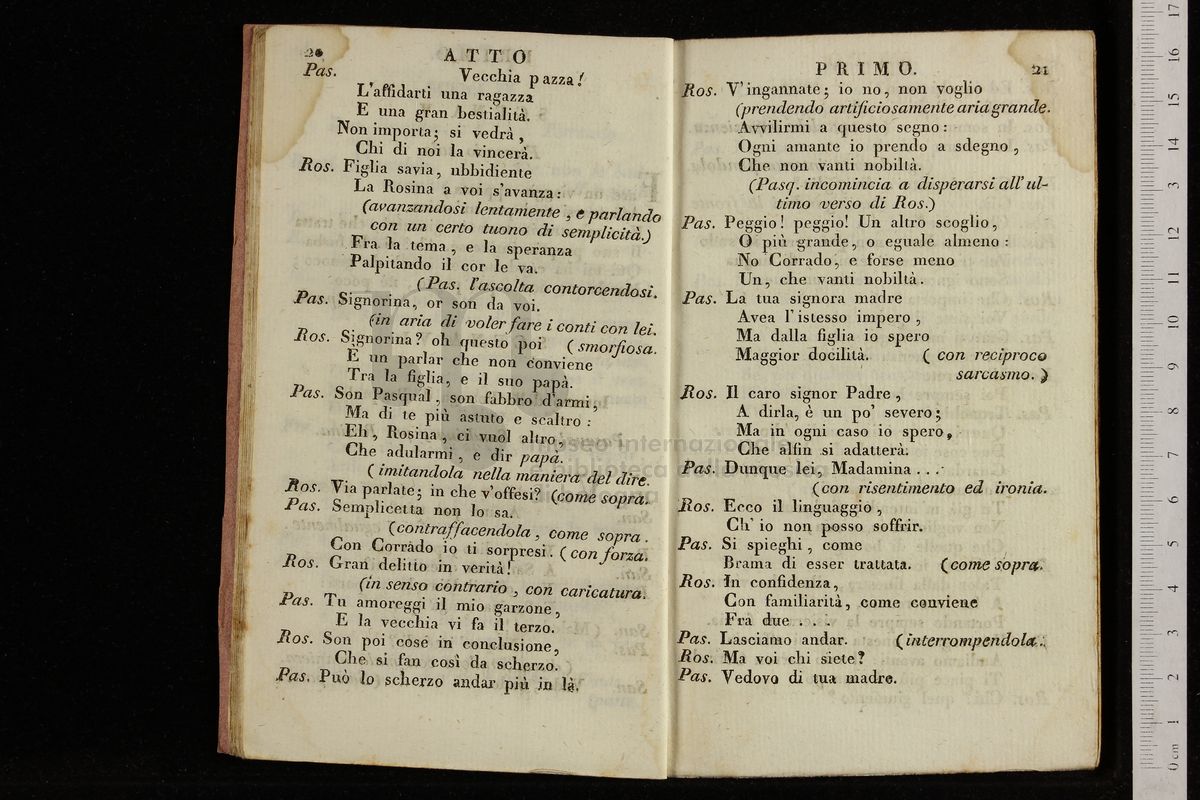 20
ATTO
Pas. Vecchia pazza!
L'affidarti una ragazza
E una gran bestialità.
Non importa; si vedrà,
Chi di noi la vincerà.
Ros. Figlia savia, ubbidiente
La Rosina a voi s'avanza:
(avanzandosi lentamente, e parlando
con un certo tuono di semplicità.)
Fra la tema, e la speranza
Palpitando il cor le va.
(Pas. l'ascolta contorcendosi.
Pas. Signorina, or son da voi.
(in aria di voler fare i conti con lei.
Ros. Signorina? oh questo poi (smorfiosa.
E un parlar che non conviene
Tra la figlia, e il suo papà.
Pas. Son Pasqual, son fabbro d'armi,
Ma di te più astuto e scaltro:
Eh, Rosina, ci vuol altro,
Che adularmi, e dir papà.
(imitandola nella maniera del dire.
Ros. Via parlate; in che v'offesi? (come sopra.
Pas. Semplicetta non lo sa.
(contraffacendola, come sopra.
Con Corrado io ti sorpresi. (con forza.
Ros. Gran delitto in verità!
(in senso contrario, con caricatura.
Pas. Tu amoreggi il mio garzone,
E la vecchia vi fa il terzo.
Ros. Son poi cose in conclusione,
Che si fan così da scherzo.
Pas. Può lo scherzo andar più in là.
PRIMO.
21
Ros. V'ingannate; io no, non voglio
(prendendo artificiosamente aria grande.
Avvilirmi a questo segno:
Ogni amante io prendo a sdegno,
Che non vanti nobiltà.
(Pasq. incomincia a disperarsi all'ul-
timo verso di Ros.)
Pas. Peggio! peggio! Un altro scoglio,
O più grande, o eguale almeno:
No Corrado, e forse meno
Un, che vanti nobiltà.
Pas. La tua signora madre
Avea l'istesso impero,
Ma dalla figlia io spero
Maggior docilità. (con reciproco
sarcasmo.)
Ros. Il caro signor Padre,
A dirla, è un po' severo;
Ma in ogni caso io spero,
Che alfin si adatterà.
Pas. Dunque lei, Madamina...
(con risentimento ed ironia.
Ros. Ecco il linguaggio,
Ch' io non posso soffrir.
Pas. Si spieghi, come
Brama di esser trattata. (come sopra.
Ros. In confidenza,
Con familiarità, come conviene
Fra due ...
Pas. Lasciamo andar. (interrompendola.
Ros. Ma voi chi siete?
Pas. Vedovo di tua madre.